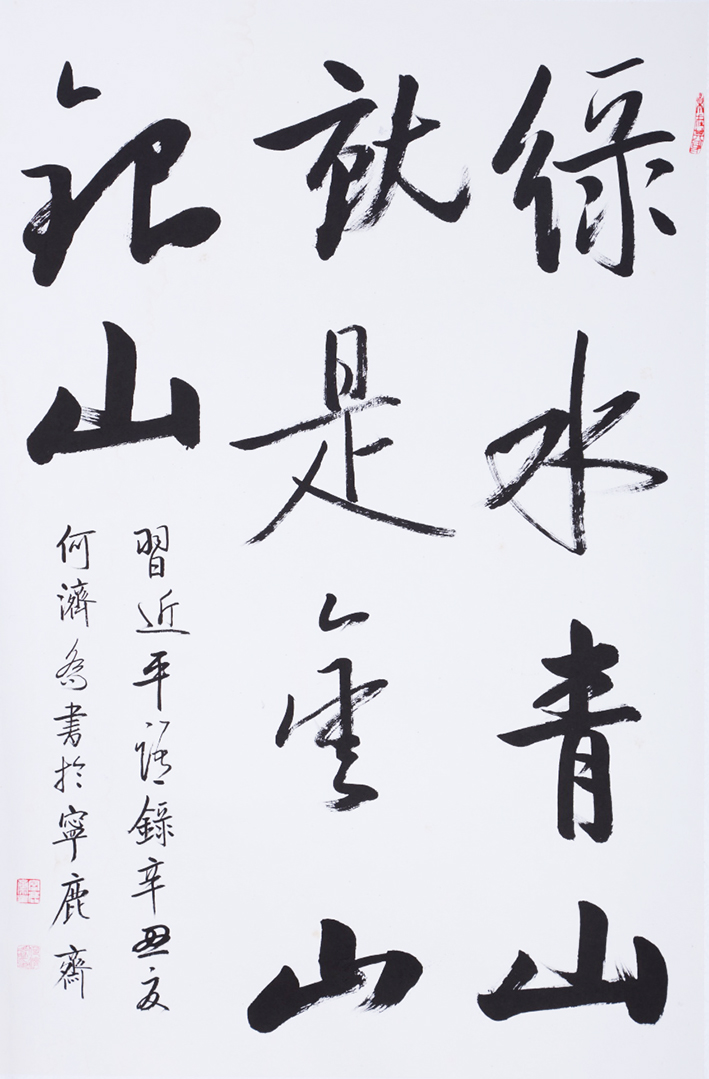 綠水青山
就是金山
銀山
習近平語錄辛丑夏
何濟書於寧鹿齋